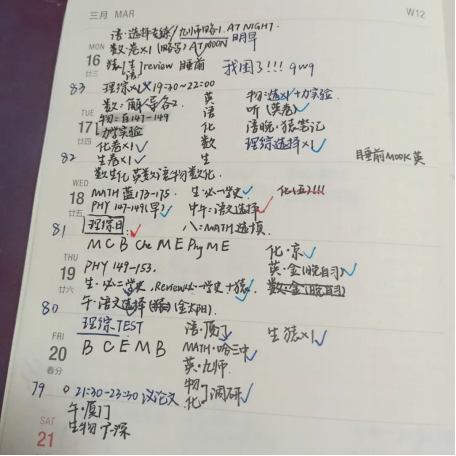 三月 MAR W12
语·选择专练/九师略1. AT NIGHT.
MON 数·卷x1(略写) AT NOON 明早
16 猿[生]review 睡前 我困了!!! qwq
廿三 语
83 理综x1 19:30~22:00
数:解答各2. 英 物:选x1+力实验
TUE 物:百147-149 语 听(英卷)
17 力学实验 化 语晚·猿笔记
廿四 化卷x1 数 理综选择x1
82 生卷x1 生 睡前MOOK英
数生化英数语物数化.
WED MATH 蓝173-175. 生·必一学史. 化(五)!!!
18 PHY 147-149(早) 中午:语文选择
廿五 理综日 八:MATH选填.
81 M C B Che M E Phy M E
化·京
THU PHY 149-153. 英·金(晚自习)
19 生·必二学史. Review必一学史+猿. 数·金(晚自习)
廿六 午·语文选择 (金太阳).
80
理综TEST 语·厦门 生猿x1
FRI B C E M B MATH·哈三中
20 英·九师
春分 物 化 调研
79 21:30-23:30 议论文
午·厦门
SAT 生物
21